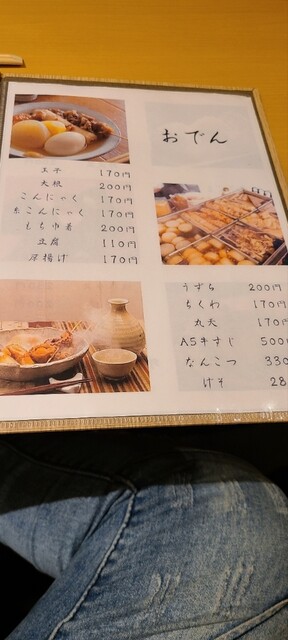 おでん
玉子 170円
大根 200円
こんにゃく 170円
糸こんにゃく 170円
もち巾着 200円
豆腐 110円
厚揚げ 170円
うずら 200円
ちくわ 170円
丸天 170円
A5牛すじ 500
なんこつ 330
げそ 28